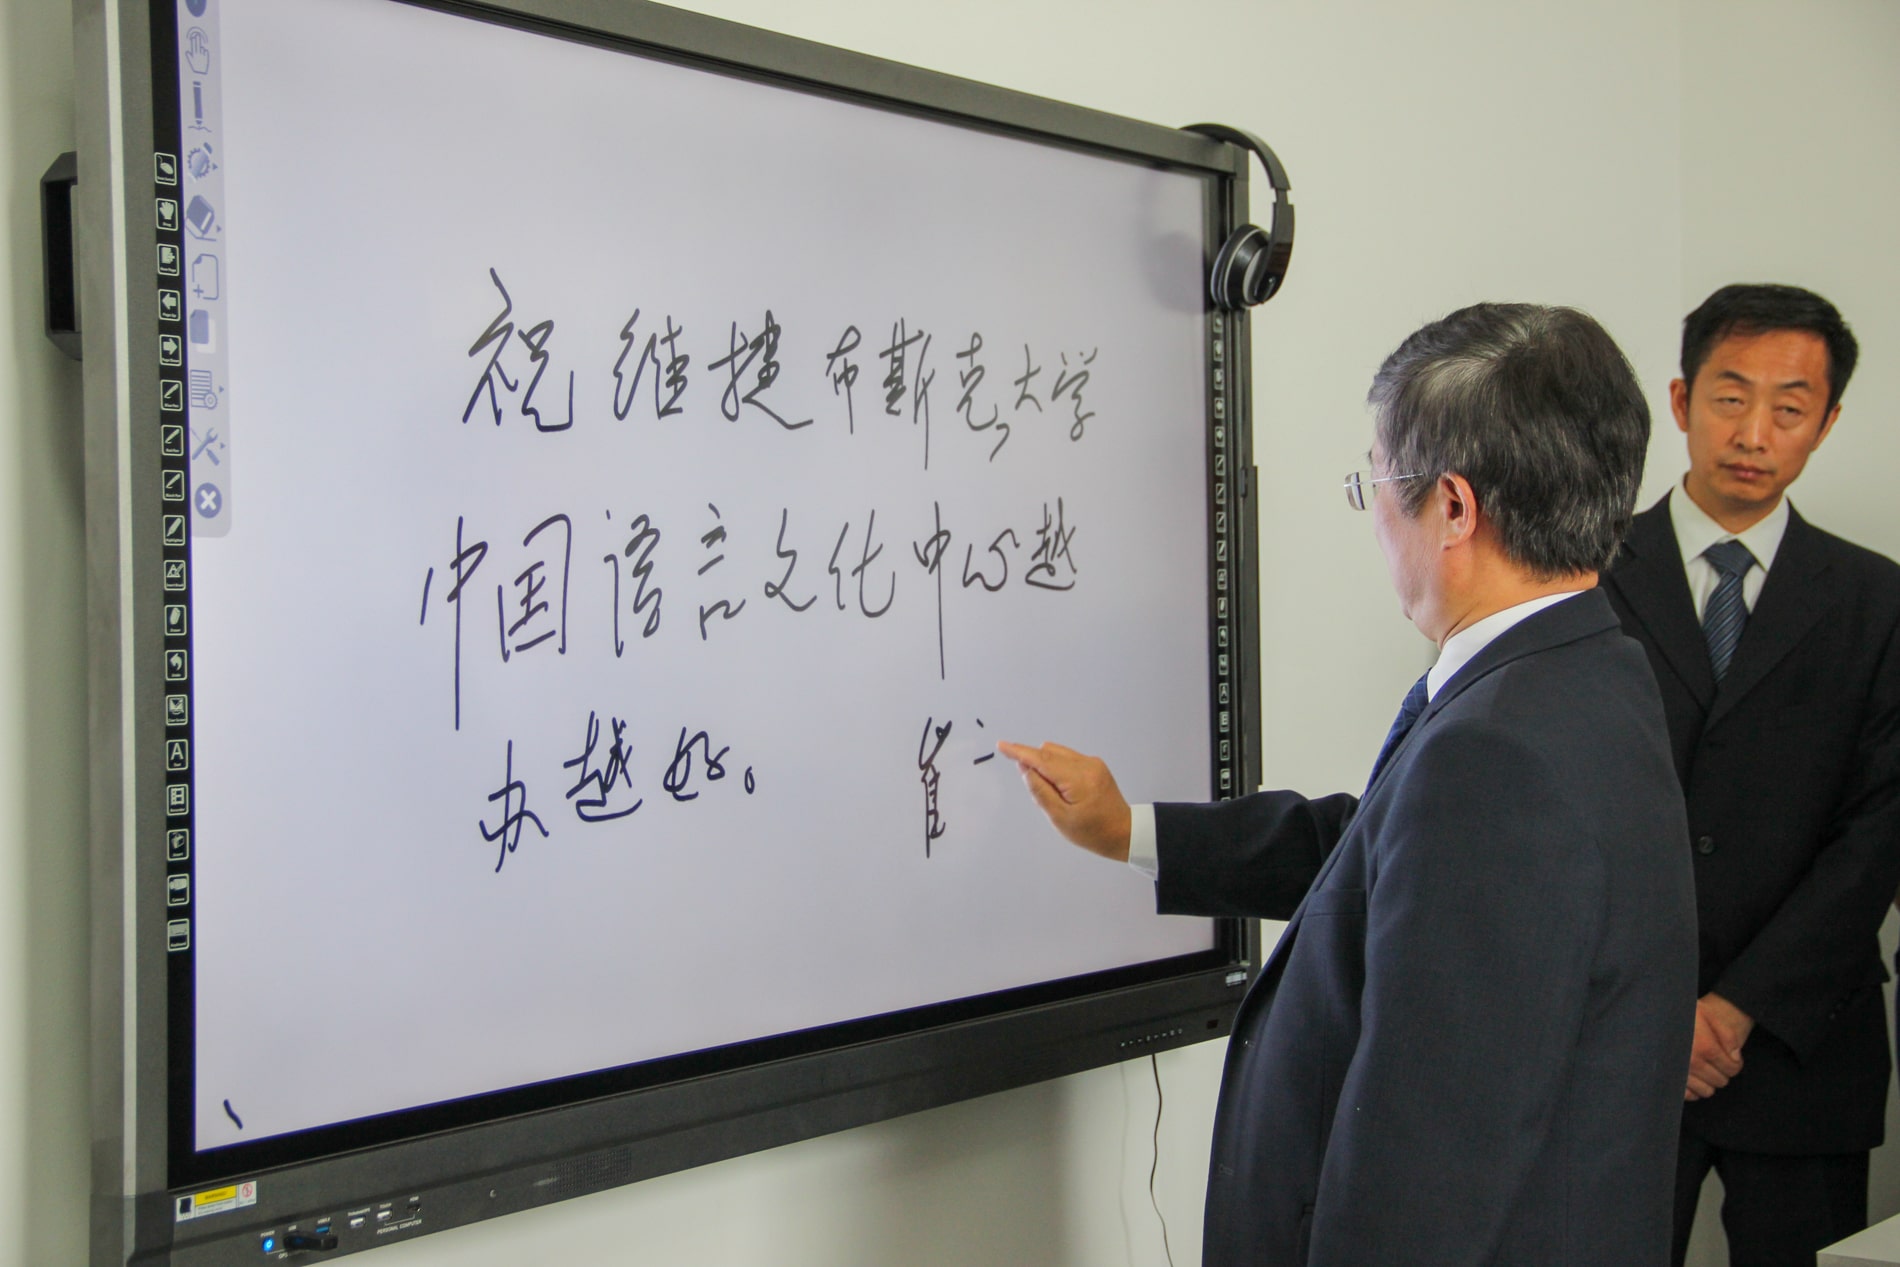 祝维捷布斯克大学
中国语言文化中心越
办越好。 崔
WARNING!
PERSONAL COMPUTER